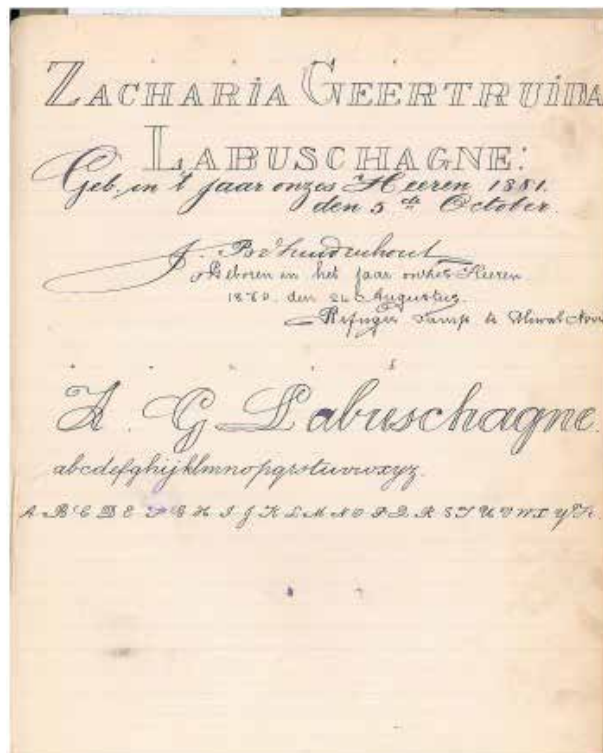 ZACHARIA GEERTRUIDA
LABUSCHAGNE:
Geb. in 't jaar onzes Heeren 1881.
den 5de October.
J. Bezuidenhout
Geboren in het jaar onzes Heeren
den 24 Augustus
Refugee Camp te Aliwal Noord
G Labuschagne.
abcdefghijklmnopqrstuvwxyz.
A B C D E F G H I J K L M N O P Q R S T U V W X Y Z.